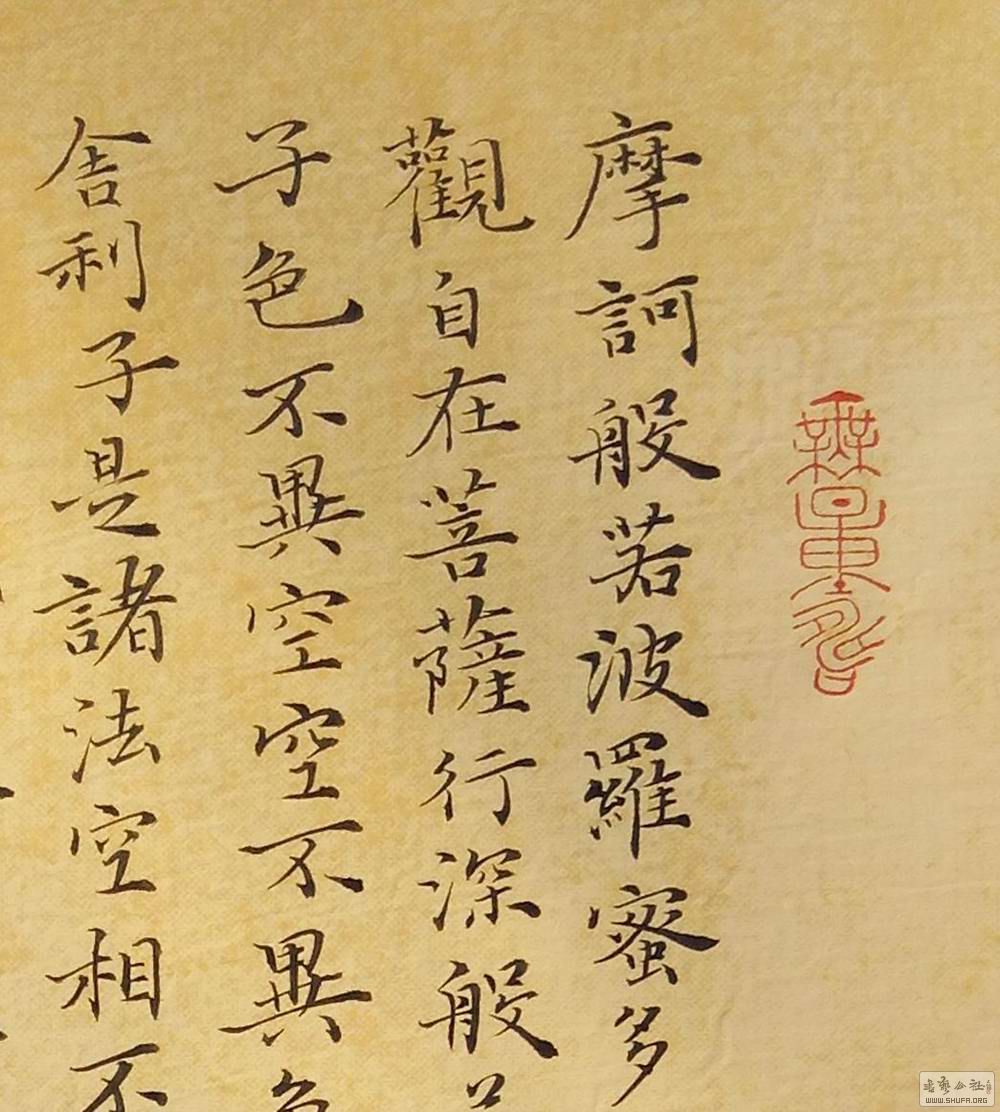 摩訶般若波羅蜜多
觀自在菩薩行深般
子色不異空空不異色
舍利子是諸法空相不
書藝公社
WWW.SHUFA.ORG